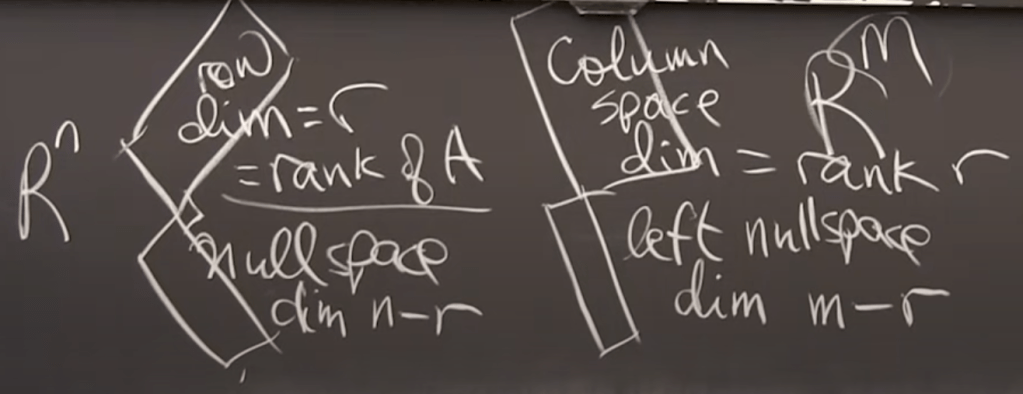 R^n
row
dim = r
= rank of A
nullspace
dim n-r
Column
space
R^m
dim = rank r
left nullspace
dim m-r